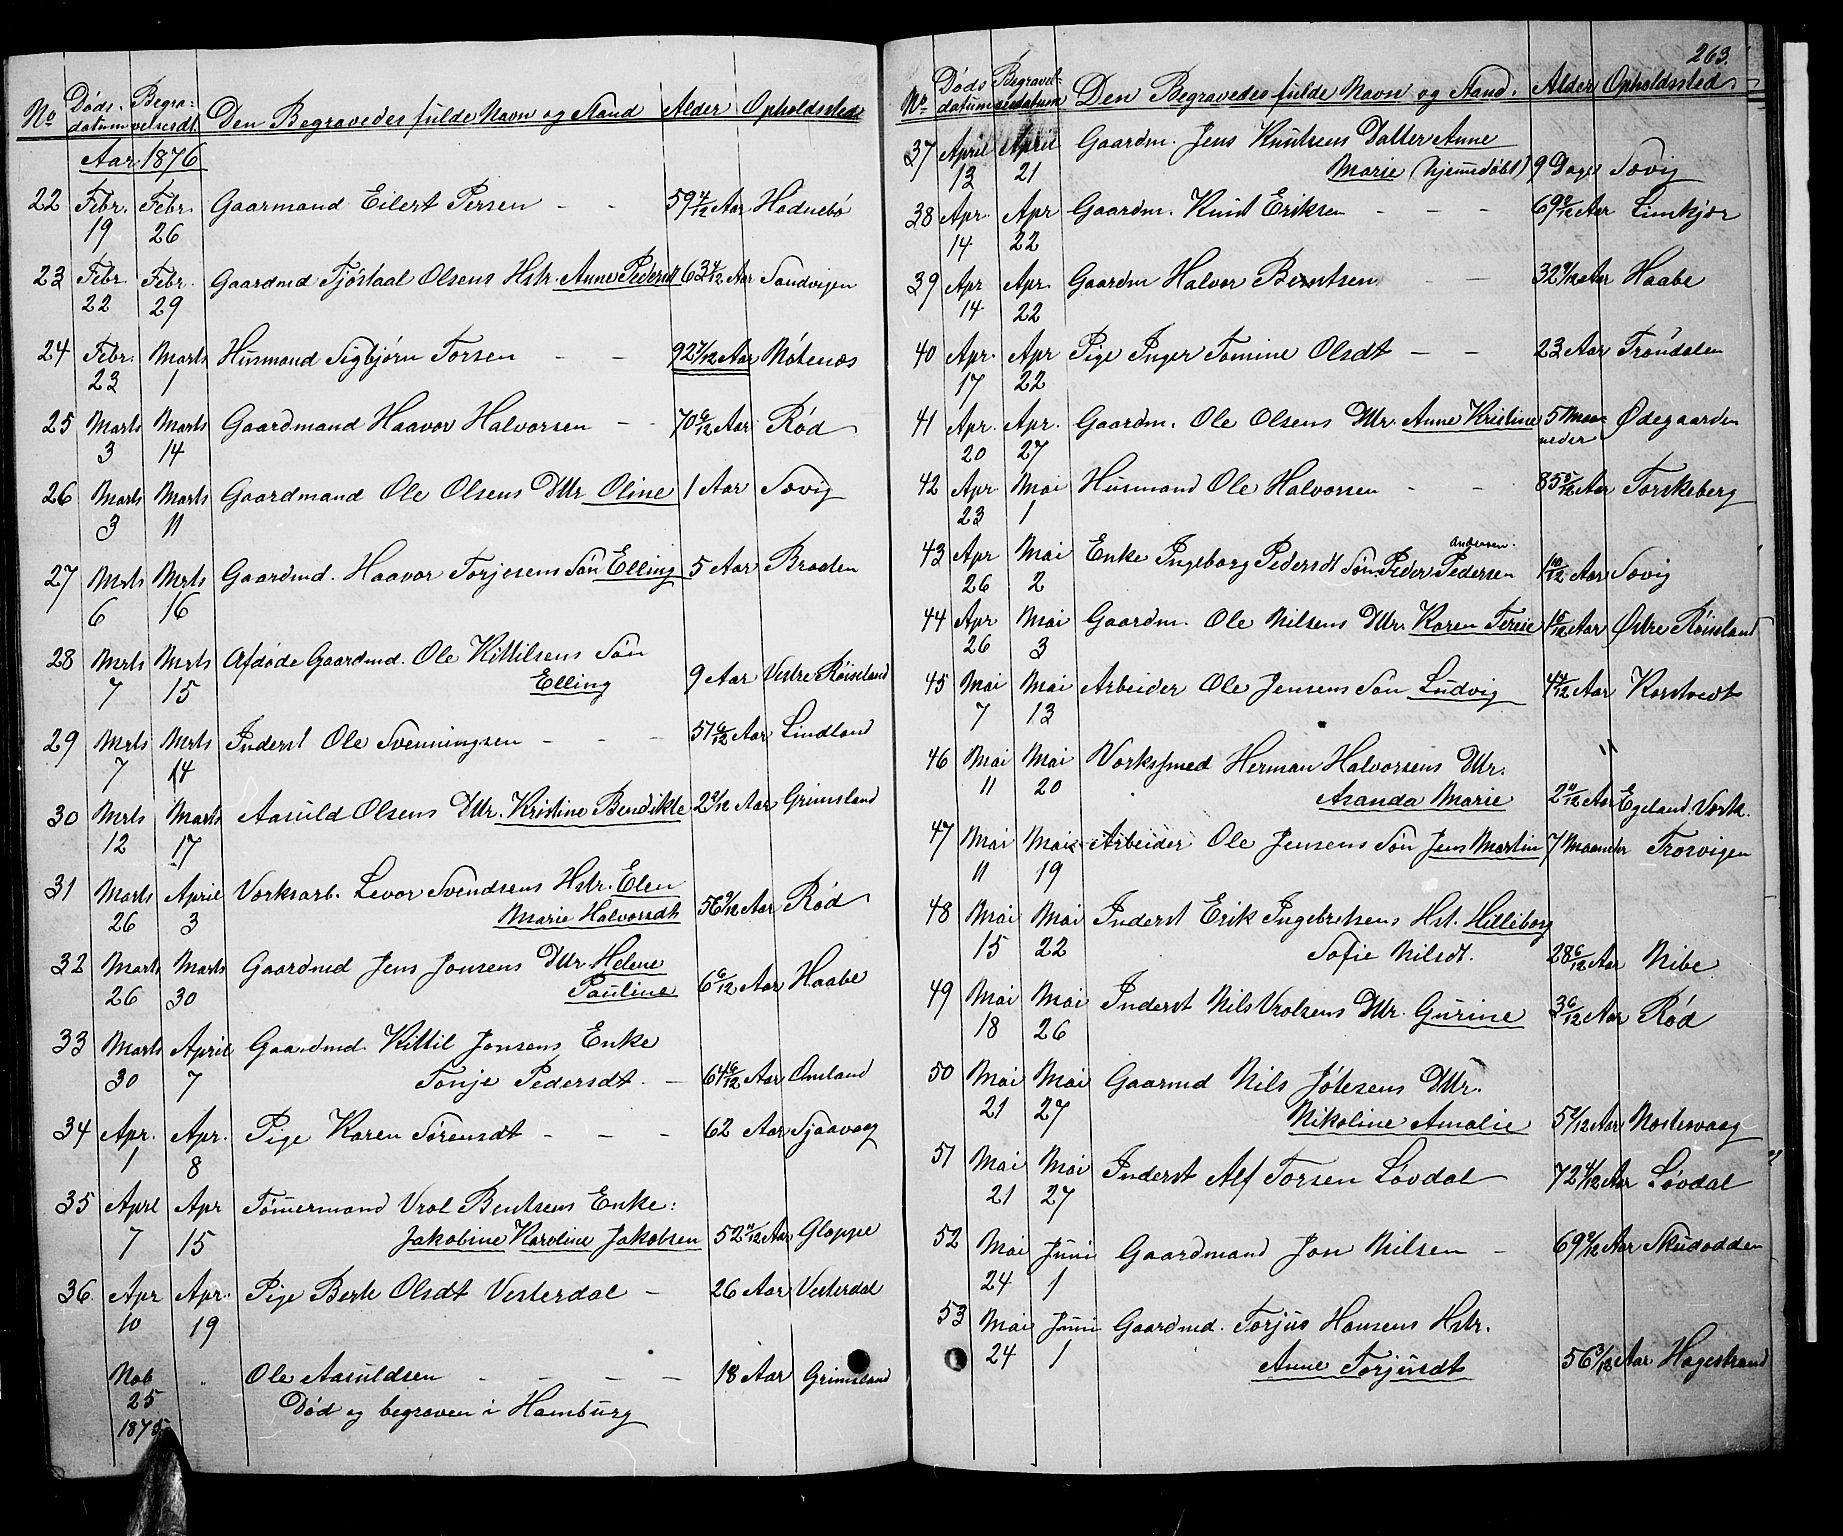 No Døds- Begra- Den Begravedes fulde Navn og Stand Alder Opholdssted
datum velsesdt.
Aar 1876
22 Febr. Febr. Gaarmand Eilert Persen - - 59 4/12 Aar Hodnebø
19 26
23 Febr. Febr. Gaardmd Tjöstaal Olsens Hstr. Anne Pedersd 63 4/12 Aar Sandvigen
22 29
24 Febr. Marts Husmand Sigbjørn Torsen - - 92 7/12 Aar Nötenæs
23 1
25 Marts Marts Gaardmand Haavor Halvorsen - - 70 6/12 Aar Rød
3 14
26 Marts Marts Gaardmand Ole Olsens Dttr Oline 1 Aar Søvig
3 11
27 Mrts Mrts Gaardmd. Haavor Torjesens Sön Elling 5 Aar Braaten
6 16
28 Mrts Mrts Afdøde Gaardmd. Ole Kittilsens Sön
7 15 Elling 9 Aar Vestre Røiseland
29 Mrts Mrts Inderst Ole Svenningsen - - - 51 6/12 Aar Lindland
7 14
30 Mrts Marts Aasuld Olsens Dttr. Kristine Bendikte 2 2/12 Aar Grimsland
12 17
31 Marts April Værksarb. Levor Svendsens Hstr. Elen
26 3 Marie Halvorsdt 56 9/12 Aar Rød
32 Marts Marts Gaardmd Jens Jonsens Dttr Helene
26 30 Pauline 6 6/12 Aar Haabe
33 Marts April Gaardmd. Kittil Jonsens Enke
30 7 Tonje Pedersdt. - 64 6/12 Aar Omland
34 Apr. Apr. Pige Karen Sörensdt - - - 62 Aar Sjaavaag
1 8
35 April Apr Tømermand Vrol Bentsens Enke:
7 15 Jakobine Karoline Jakobsen 52 11/12 Aar Gloppe
36 Apr Apr. Pige Berte Olsdt Vesterdal - 26 Aar Vesterdal
10 19
Nob . Ole Aasuldsen - - - - 18 Aar Grimsland
25 Død og begraven i Hamburg
1875
263.
No. Døds Begravel- Den Begravedes fulde Navn og Stand. Alder Opholdssted
datum sesdatum
37 April April Gaardm. Jens Knutsens Datter Anne
13 21 Marie (hjemedøbt) 9 Dage Søvig
38 Apr. Apr Gaardm. Knut Eriksen - - - 69 9/12 Aar Limkjær
14 22
39 Apr Apr. Gaardm Halvor Berntsen - - 32 9/12 Aar Haabe
14 22
40 Apr. Apr Pige Inger Tomine Olsdt - - 23 Aar Tröndalen
17 22
41 Apr. Apr. Gaardm. Ole Olsens Dttr. Anne Kristine 5 Maa- Ødegaarden
20 27 neder
42 Apr Mai Husmand Ole Halvorsen - - 85 5/12 Aar Torskeberg
23 1
Andersen.
43 Apr Mai Enke Ingeborg Pedersdt Sön Peder Pedersen 1 10/12 Aar Søvig
26 2
44 Apr Mai Gaardm. Ole Nilsens Dttr. Karen Terese 1 5/12 Aar Østre Røiseland
26 3
45 Mai Mai Arbeider Ole Jensens Sön Ludvig 4 4/12 Aar Korstvedt
7 13
46 Mai Mai Værksmed Herman Halvorsens Dttr.
11 20 Asanda Marie 2 11/12 Aar Egeland. Værk.
47 Mai Mai Arbeider Ole Jensens Sön Jens Martin 7 Maaneder Trosvigen
11 19
48 Mai Mai Inderst Erik Ingebretsens Hst. Hilleborg
15 22 Sofie Nilsdt. 28 6/12 Aar Nibe
49 Mai Mai Inderst Nils Vrolsens Dttr. Gurine 3 6/12 Aar Rød
18 26
50 Mai Mai Gaarmd Nils Jölesens Dttr.
21 27 Nikoline Amalie 5 7/12 Aar Nostesvaag
51 Mai Mai Inderst Alf Torsen Løvdal 72 4/12 Aar Løvdal
21 27
52 Mai Juni Gaardmand Jon Nilsen - 69 9/12 Aar Skudodden
24 1
53 Mai Juni Gaardmd. Torjus Hansens Hstr.
24 1 Anne Torjusdt 56 3/12 Aar Hagestrand